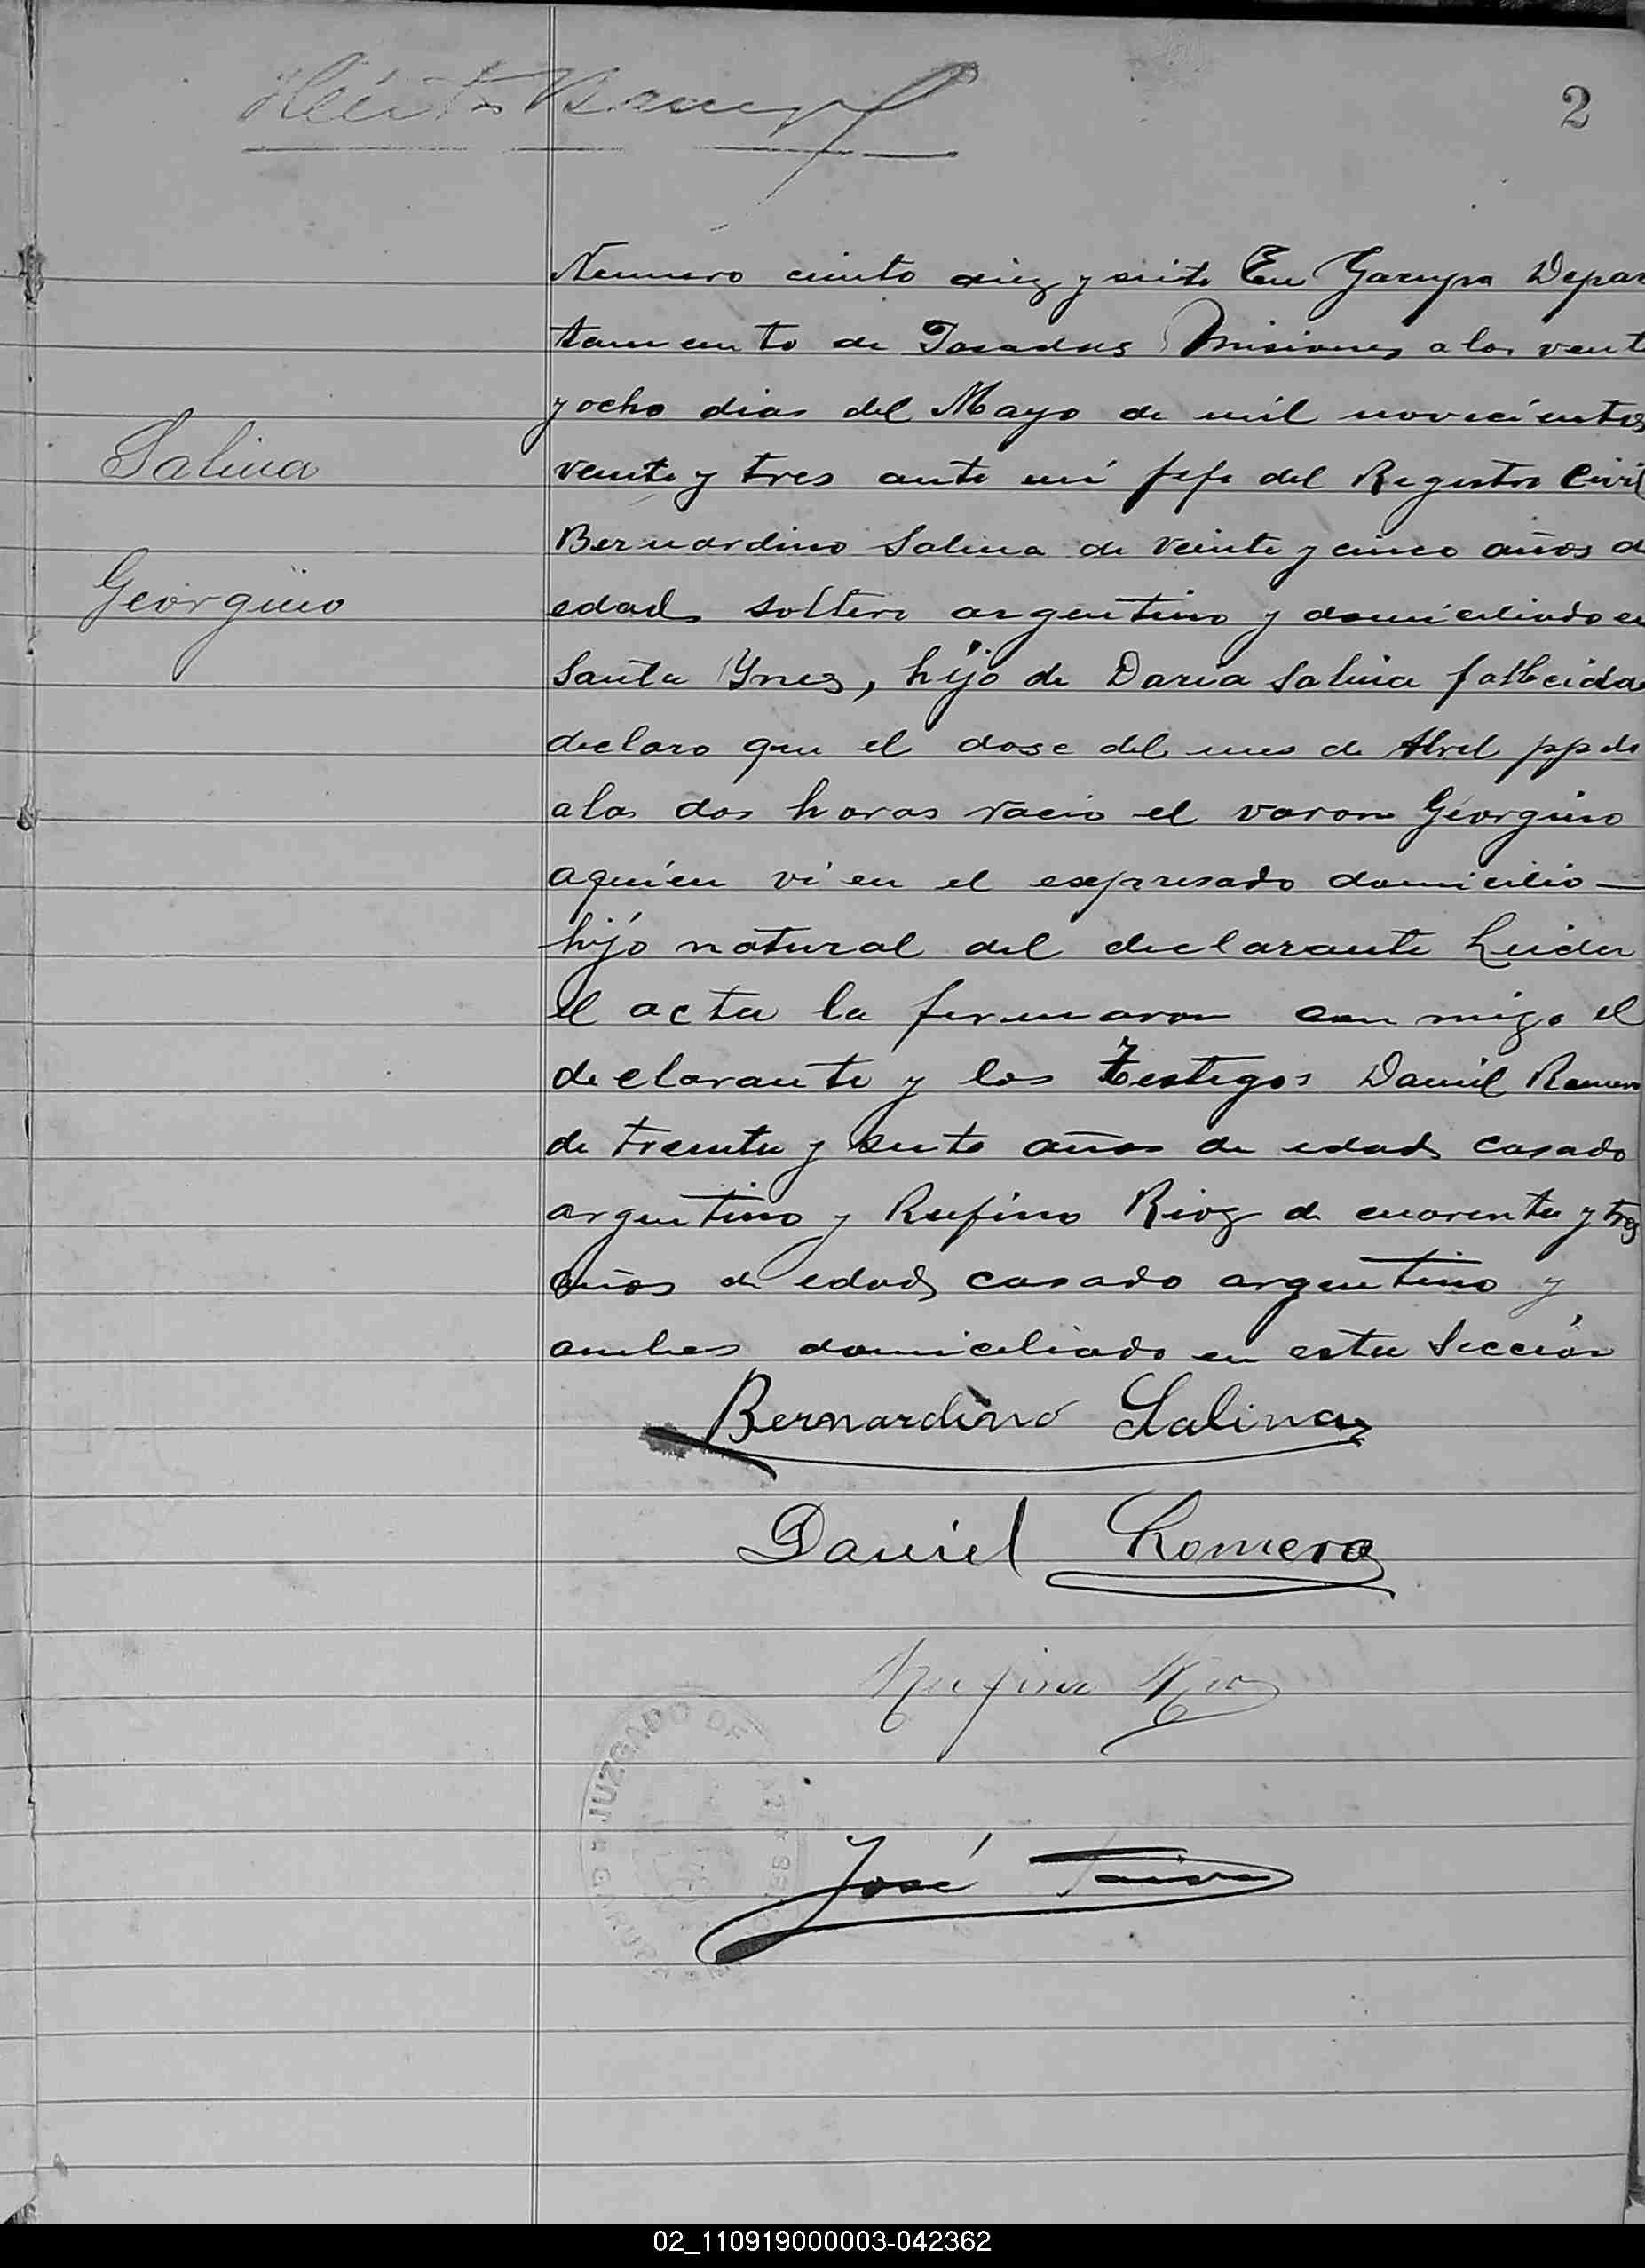 2
Numero ciento diez y siete En Garupa Depar
tamento de Posadas Misiones a los veinte
y ocho dias del Mayo de mil novecientos
Salina
veinte y tres ante mi Jefe del Registro Civil
Bernardino Salina de veinte y cinco años d
Georgino
edad soltero argentino y domiciliado en
Santa Ynes, hijo de Daria Salina fallecida
declaro que el dose del mes de Abril ppdo
a las dos horas nacio el varon Georgino
aquien vi en el expresado domicilio —
hijo natural del declarante Leida
el acta la firmaron con migo el
declarante y los testigos Daniel Romero
de treinta y siete años de edad casado
argentino y Rufino Rioz de cuarenta y tres
años de edad casado argentino y
ambos domiciliado en esta Sección
Bernardino Salinas
Daniel Romero
Rufino Rios
JUZGADO DE
José
02_110919000003-042362